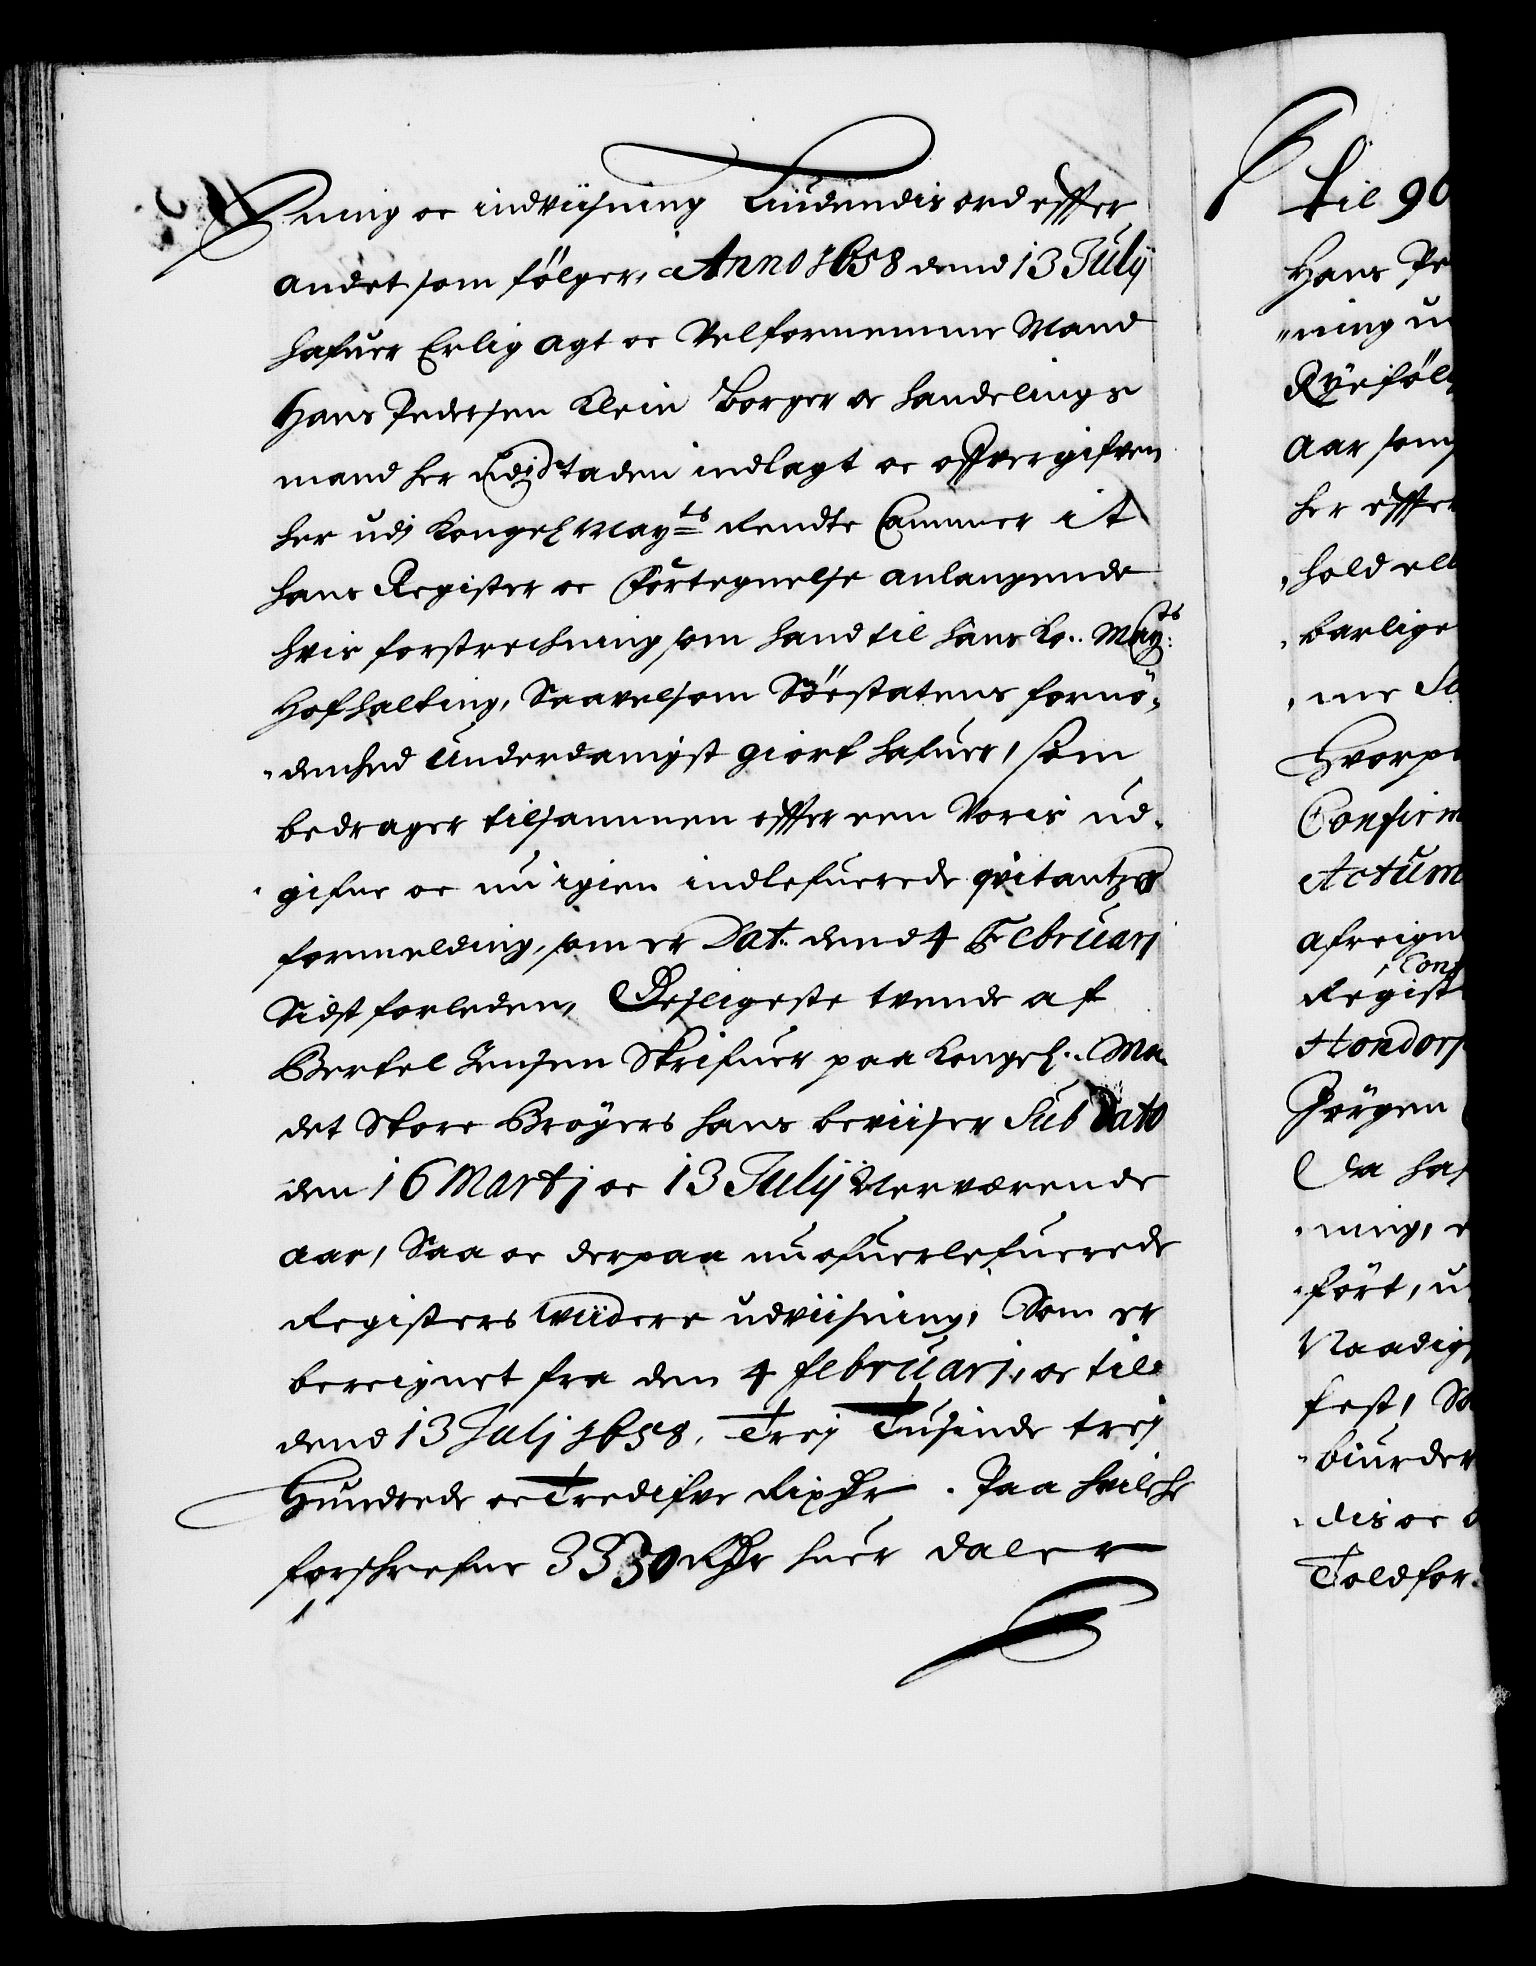 ning oc indviisning Liudendis ord effter
andet som følger, Anno 1658 dend 13 Julij
hafuer Erlig Agt oc Velfornemme Mand
Hans Pedersen Klein Borger oc handelings
mand her udi Staden indlagt oc offvergifven
her udj Kongel Mayts Rendte Cammer it
hans Register oc Fortegnelse anlangende
hvis forstrechning som hand til hans Ko. Mayts:
Hofhalting, Saavelsom Söestatens fornö-
denhed Underdanigst giort hafuer, som
bedrager tilsammen effter een Voris ud-
gifne oc nu igien indlefuerede qvitantzes
formelding, som er Dat. dend 4 Februarj
Sidst forleden, Desligeste tvende af
Bertel Jensen Skrifuer paa Kongel. Ma.
det Store Brögers hans beviiser Sub Dato
den 16 Martj oc 13 Julij Nerværende
aar, Saa oc derpaa nu ofuerlefuerede
Registers widere udviisning, Som er
bereignet fra den 4 februarj, oc til
dend 13 Julj 1658, Trej Tusinde trej
Hundrede oc Tredifve Rixdr. Paa hvilche
forschrefne 3330 Rdr huer daler
til 90
Hans Pe
ning u
Ryefôl
aar som
her effter
hold ell
barlige
me
Hvorp
Confirm
Actum
afreign
Cons
Regist
Hondorf
Jörgen
Da haf
ning, e
fört, u
Naadig
fest, So
biurder
dis oc
Toldfor